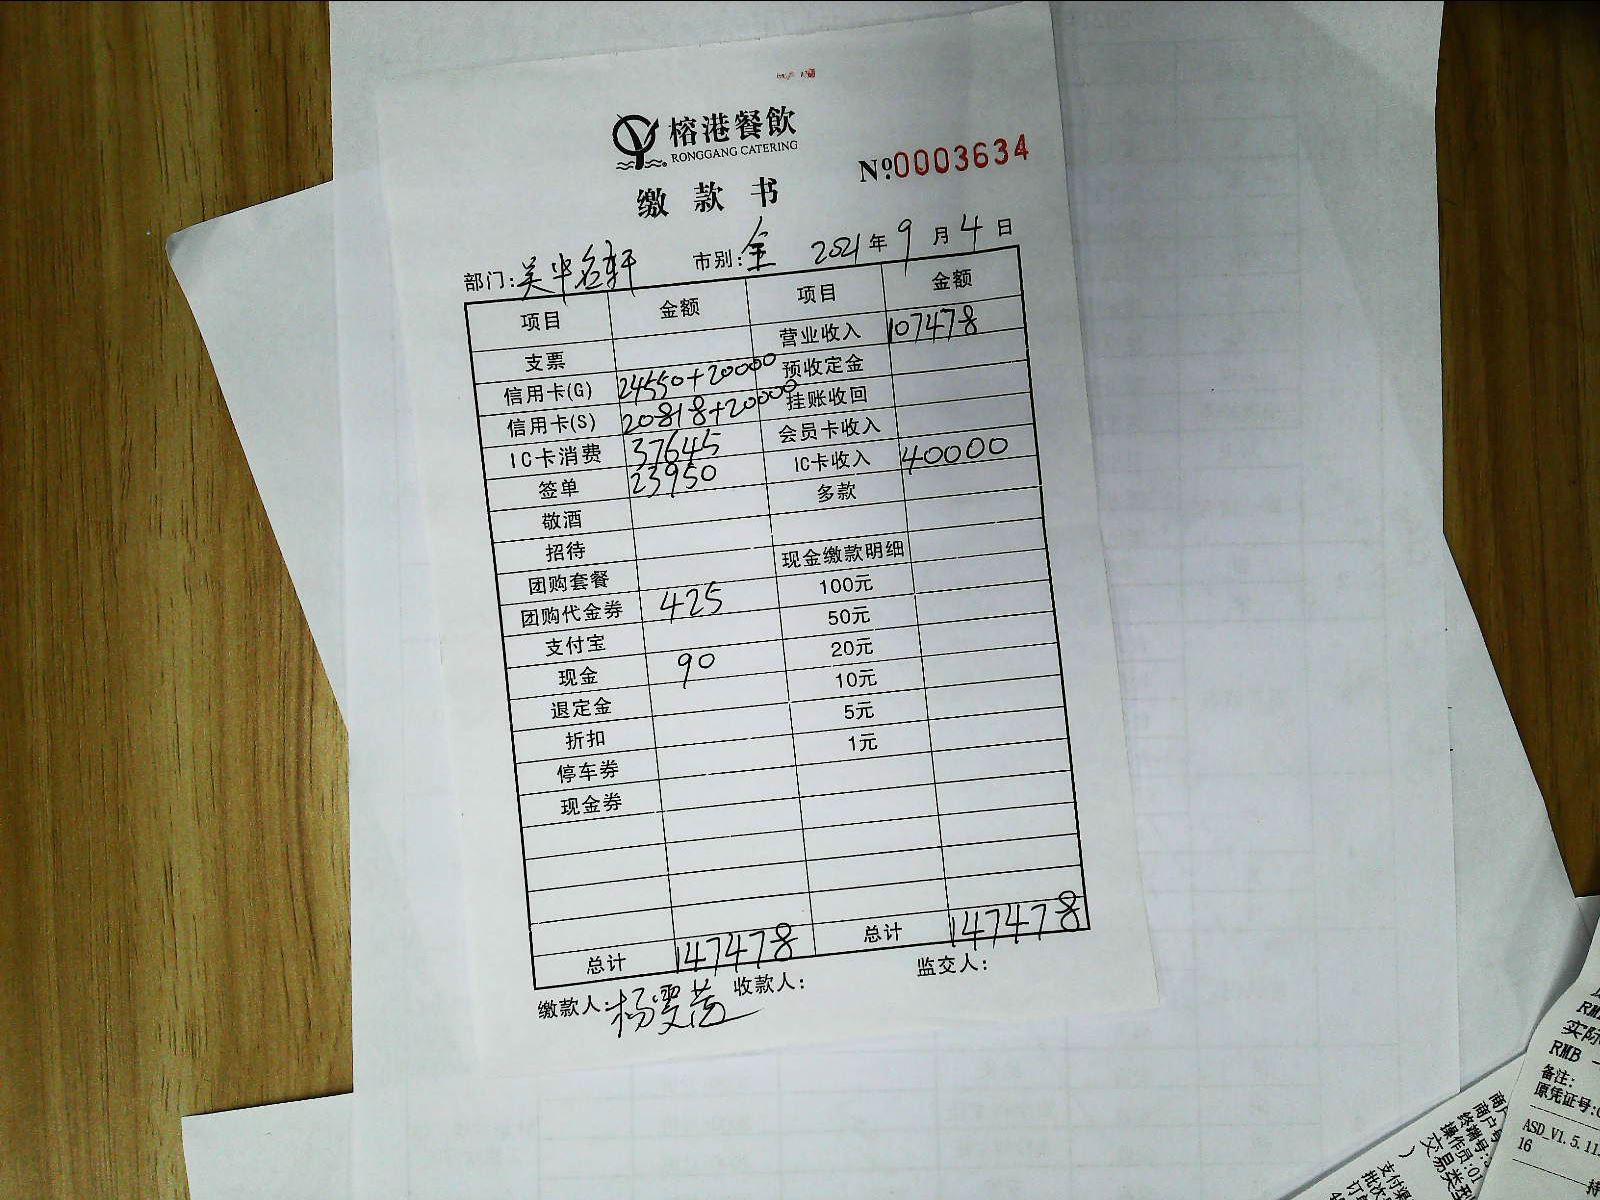 榕港餐飲
RONGGANG CATERING
№0003634
缴款书
部门:吴半名轩 市别:全 2021年9月4日
项目 金额 项目 金额
支票 营业收入 107478
信用卡(G) 24550+20000 预收定金
信用卡(S) 20818+20000 挂账收回
IC卡消费 37645 会员卡收入
签单 23950 IC卡收入 40000
敬酒 多款
招待
团购套餐 现金缴款明细
团购代金券 425 100元
支付宝 50元
现金 90 20元
退定金 10元
折扣 5元
停车券 1元
现金券
总计 147478 总计 147478
缴款人:杨雯茜 收款人: 监交人:
RMB
实际
RMB
备注:
原凭证号:
ASD_V1.5.11
16
商户号
终端号:
操作员:01
交易类型
)
支付渠
批次